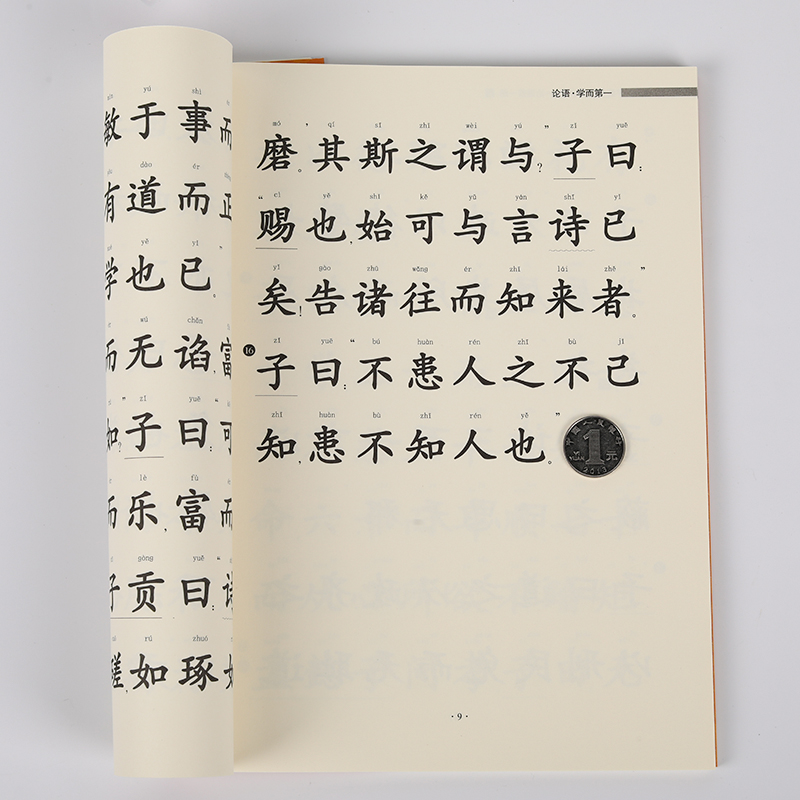 yú shì
敏于事而
dào ér
有道而正
yě yǐ
学也已。”
wú chǎn
而无谄，富
zǐ yuē
如？”子曰：“可
lè fù
而乐，富而
gòng yuē
子贡曰：“诗
rú zhuó
磋，如琢如
论语·学而第一
mó qí sī zhī wèi yú zǐ yuē
磨。’其斯之谓与？”子曰：
cì yě shǐ kě yǔ yán shī yǐ
“赐也，始可与言诗已
yǐ gào zhū wǎng ér zhī lái zhě
矣！告诸往而知来者。”
zǐ yuē bú huàn rén zhī bù jǐ
16 子曰：“不患人之不己
zhī huàn bù zhī rén yě
知，患不知人也。”
中国人民银行
1元
YI YUAN
2013
·9·